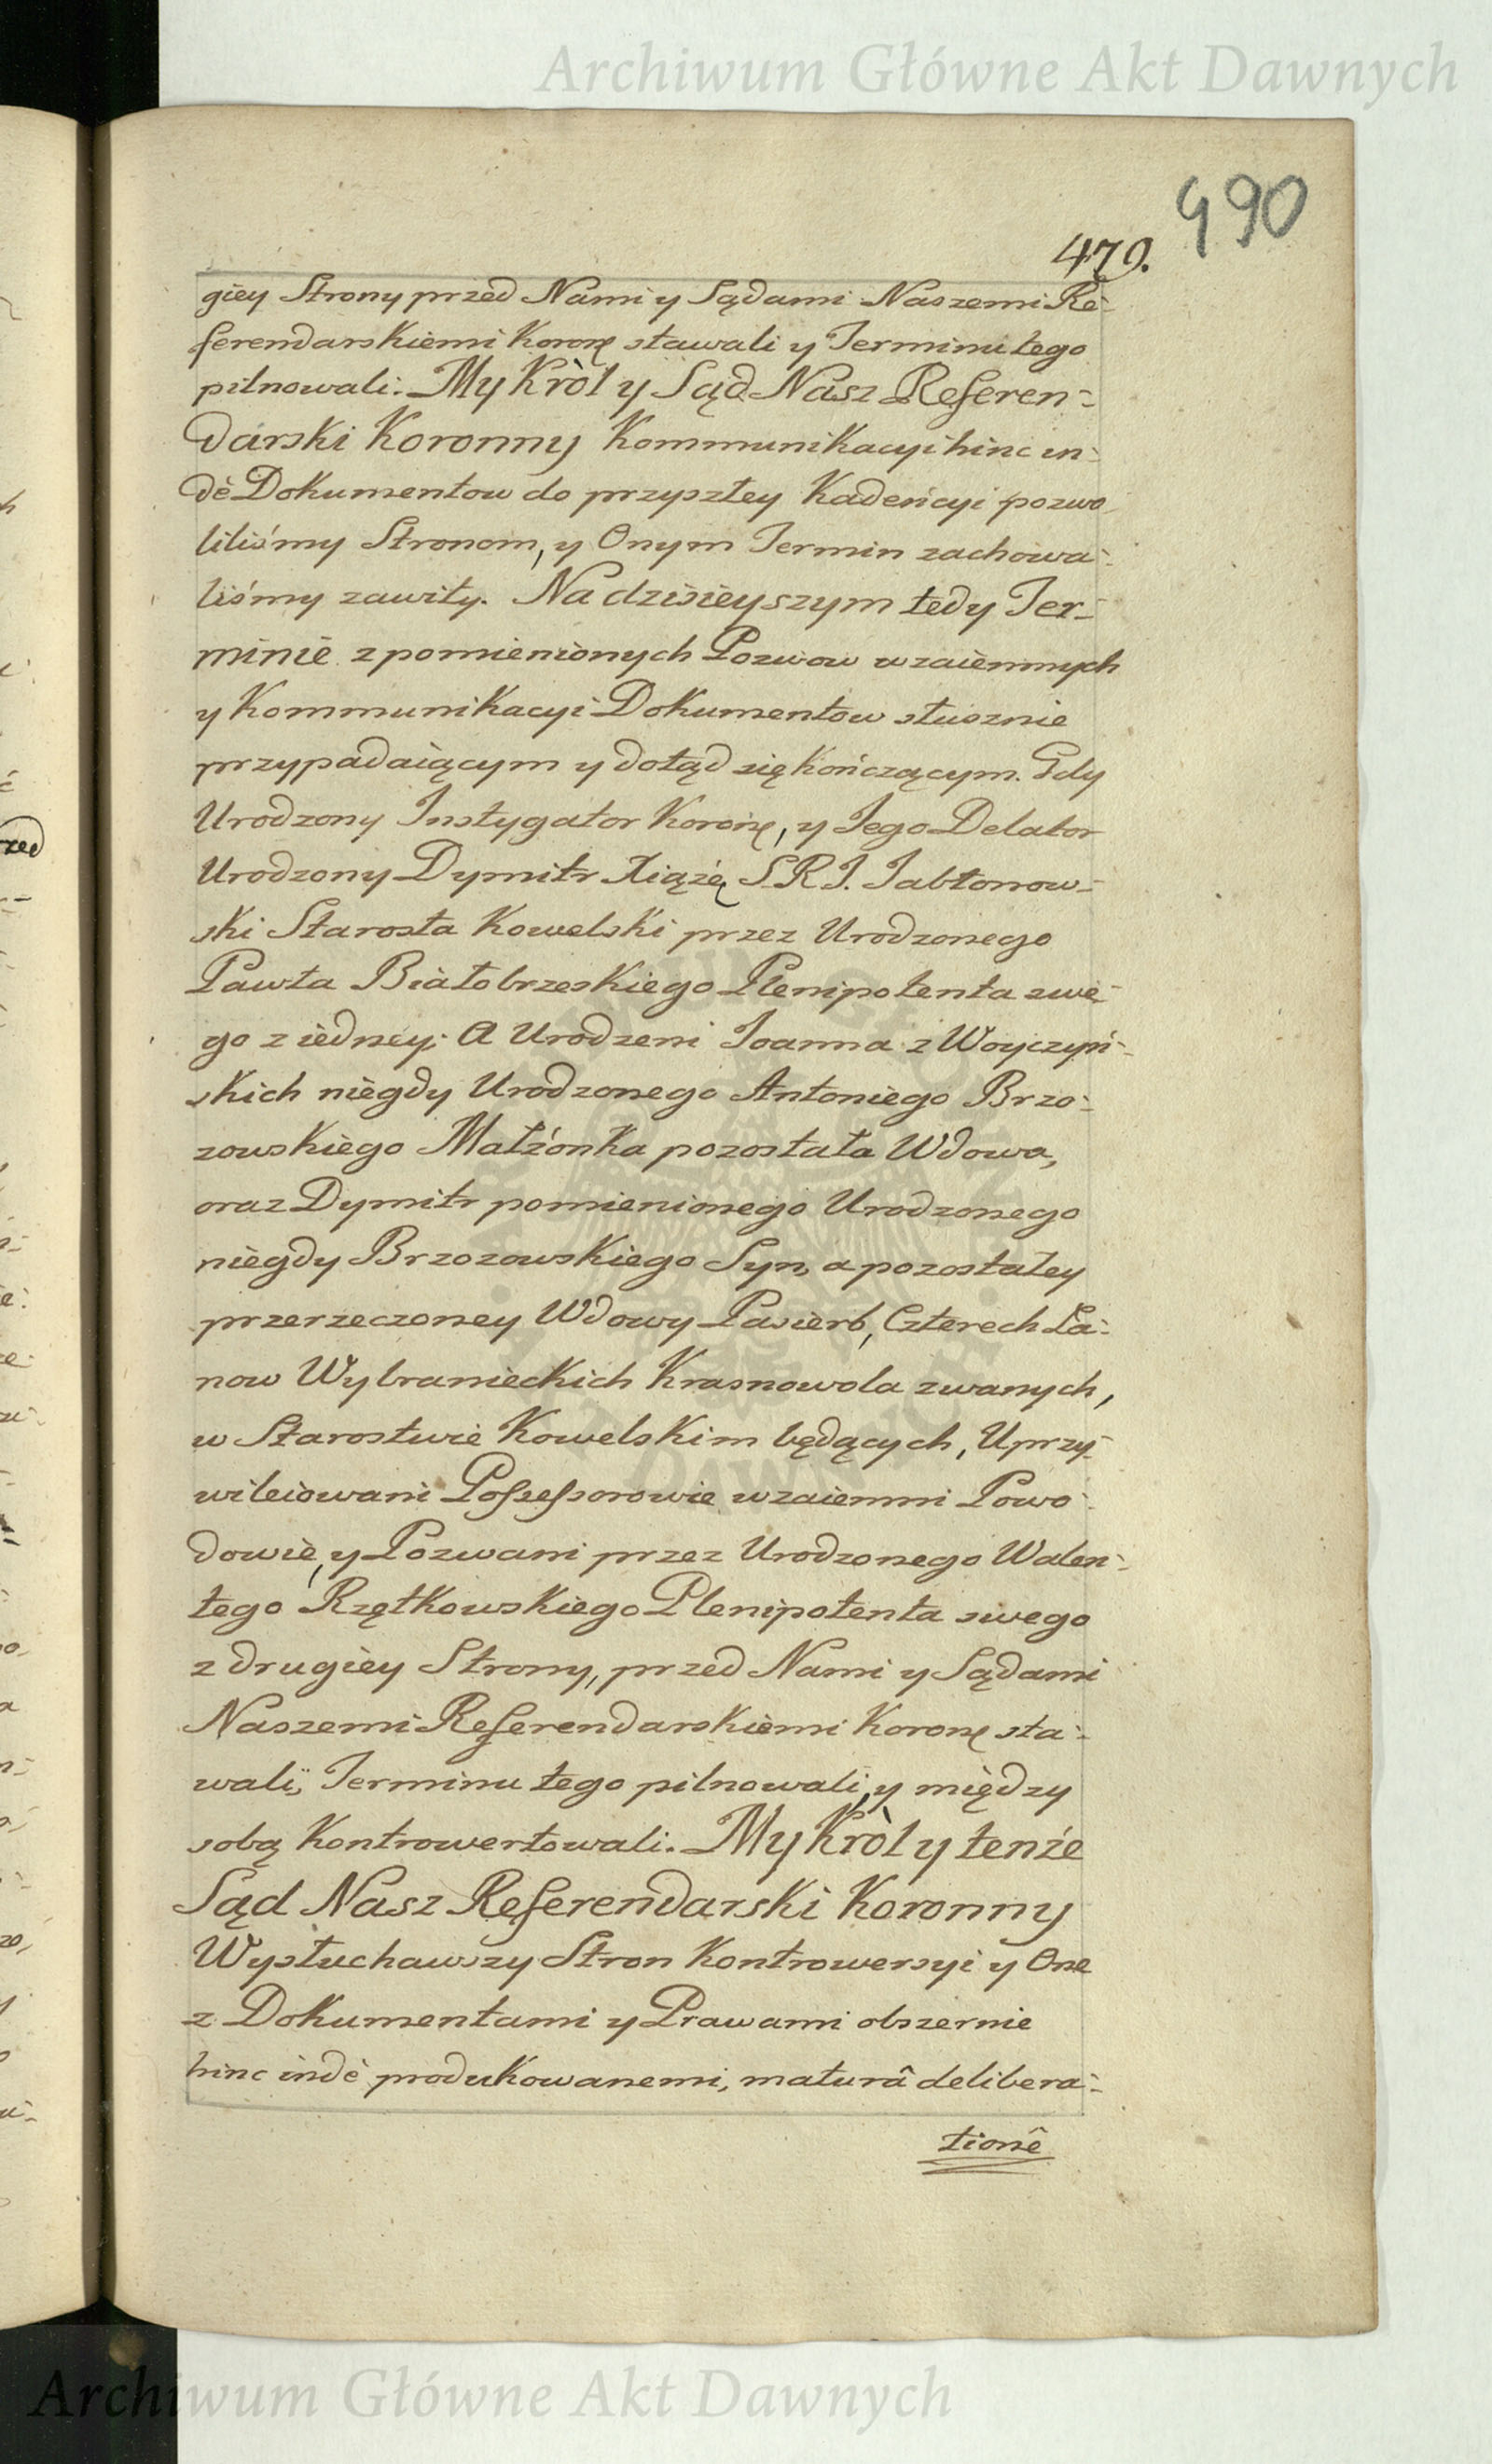 Archiwum Główne Akt Dawnych
490
479.
giey Strony przed Nami y Sądami Naszemi Re-
ferendarskiemi Koronę stawali y Terminu tego
pilnowali. My Kròl y Sąd Nasz Referen-
darski Koronny Kommunikacyi hinc in-
dè Dokumentow do przyszłey Kadencyi pozwo
liliśmy Stronom, y Onym Termin zachowa-
liśmy zawity. Na dzisieyszym tedy Ter-
minie z pomienionych Pozwow wzaiemnych
y Kommunikacyi Dokumentow słusznie
przypadaiącym y dotąd się kończącym. Gdy
Urodzony Instygator Koronę, y Jego Delator
Urodzony Dymitr Xiążę S.R.J. Jabłonow-
ski Starosta Kowelski przez Urodzonego
Pawła Białobrzeskiego Plenipotenta swe-
go z iedney; A Urodzeni Joanna z Woyczyń-
skich niegdy Urodzonego Antoniego Brzo-
zowskiego Małżonka pozostała Wdowa,
oraz Dymitr pomienionego Urodzonego
niegdy Brzozowskiego Syn, a pozostałey
przerzeczoney Wdowy Pasierb, Czterech Ła-
now Wybranieckich Krasnowola zwanych,
w Starostwie Kowelskim będących, Uprzy-
wileiowani Possessorowie wzaiemni Powo-
dowie, y Pozwani przez Urodzonego Walen-
tego Rzętkowskiego Plenipotenta swego
z drugiey Strony, przed Nami y Sądami
Naszemi Referendarskiemi Koronę sta-
wali, Terminu tego pilnowali, y między
sobą Kontrowertowali. My Kròl y tenże
Sąd Nasz Referendarski Koronny
Wysłuchawszy Stron Kontrowersyi y One
z Dokumentami y Prawami obszernie
hinc indè produkowanemi, maturâ delibera-
tionê
Archiwum Główne Akt Dawnych